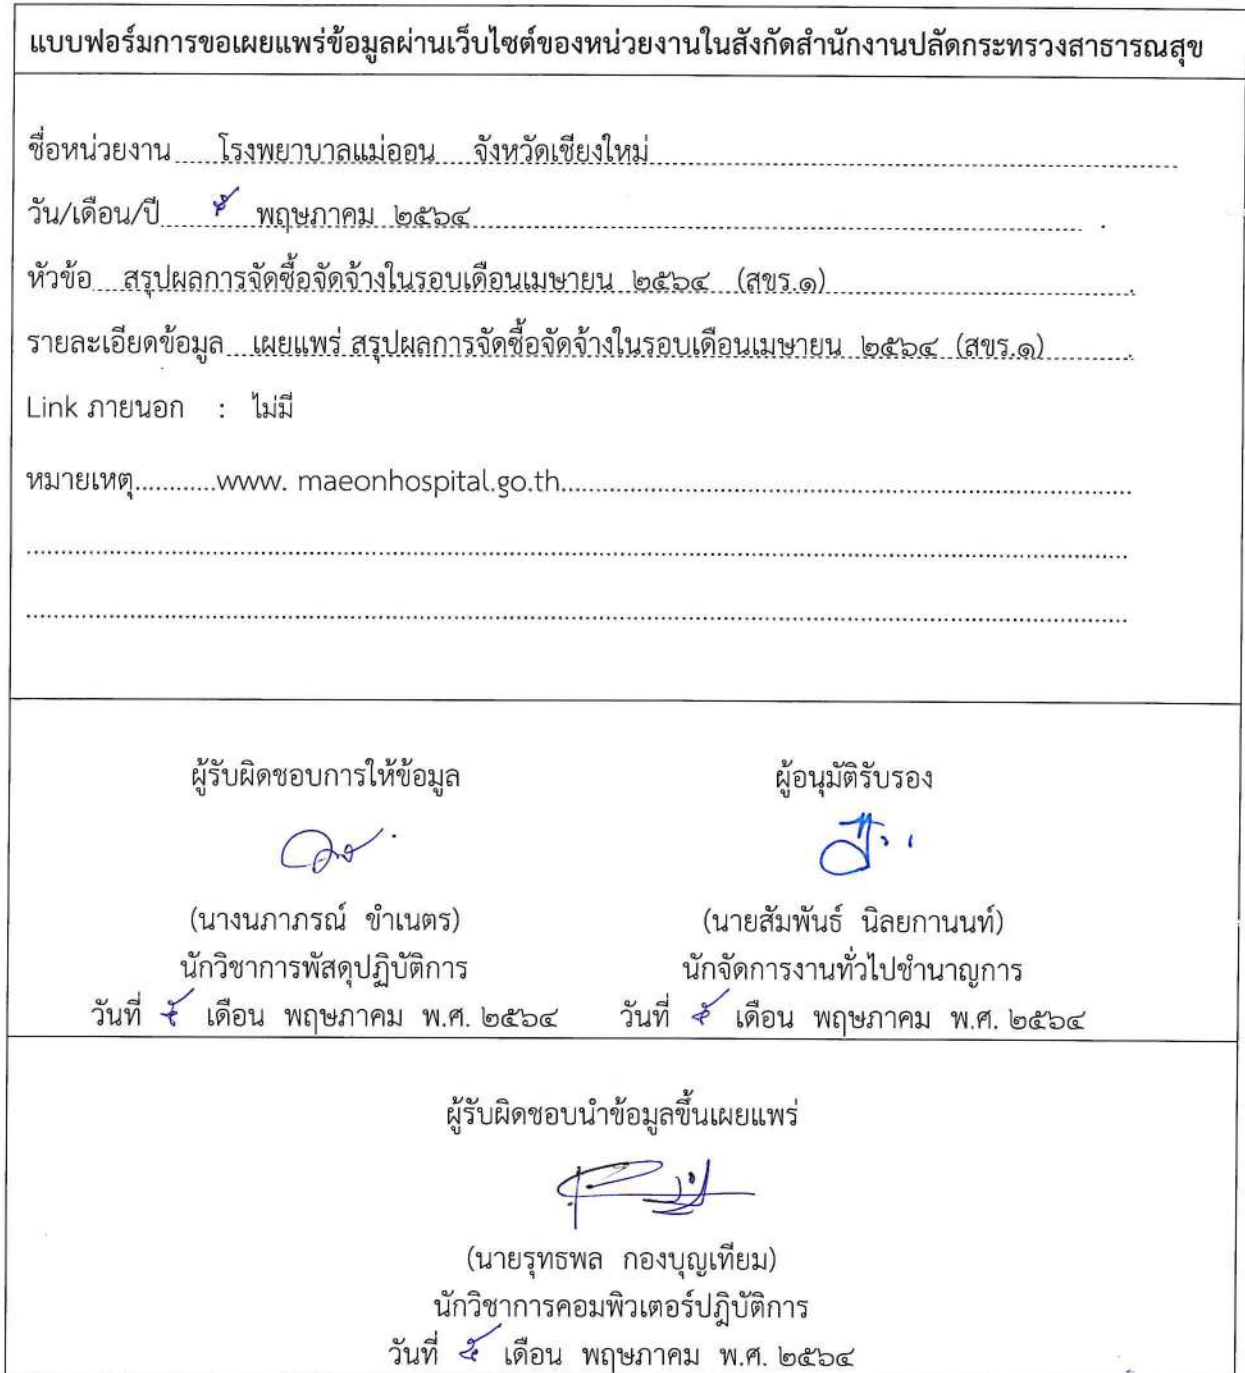 แบบฟอร์มการขอเผยแพร่ข้อมูลผ่านเว็บไซต์ของหน่วยงานในสังกัดสำนักงานปลัดกระทรวงสาธารณสุข
ชื่อหน่วยงาน โรงพยาบาลแม่ออน จังหวัดเชียงใหม่
วัน/เดือน/ปี ๕ พฤษภาคม ๒๕๖๔
หัวข้อ สรุปผลการจัดซื้อจัดจ้างในรอบเดือนเมษายน ๒๕๖๔ (สขร.๑)
รายละเอียดข้อมูล เผยแพร่ สรุปผลการจัดซื้อจัดจ้างในรอบเดือนเมษายน ๒๕๖๔ (สขร.๑)
Link ภายนอก : ไม่มี
หมายเหตุ............www. maeonhospital.go.th
ผู้รับผิดชอบการให้ข้อมูล ผู้อนุมัติรับรอง
(นางนภาภรณ์ ขำเนตร) (นายสัมพันธ์ นิลยกานนท์)
นักวิชาการพัสดุปฏิบัติการ นักจัดการงานทั่วไปชำนาญการ
วันที่ ๕ เดือน พฤษภาคม พ.ศ. ๒๕๖๔ วันที่ ๕ เดือน พฤษภาคม พ.ศ. ๒๕๖๔
ผู้รับผิดชอบนำข้อมูลขึ้นเผยแพร่
(นายรุทธพล กองบุญเทียม)
นักวิชาการคอมพิวเตอร์ปฏิบัติการ
วันที่ ๕ เดือน พฤษภาคม พ.ศ. ๒๕๖๔